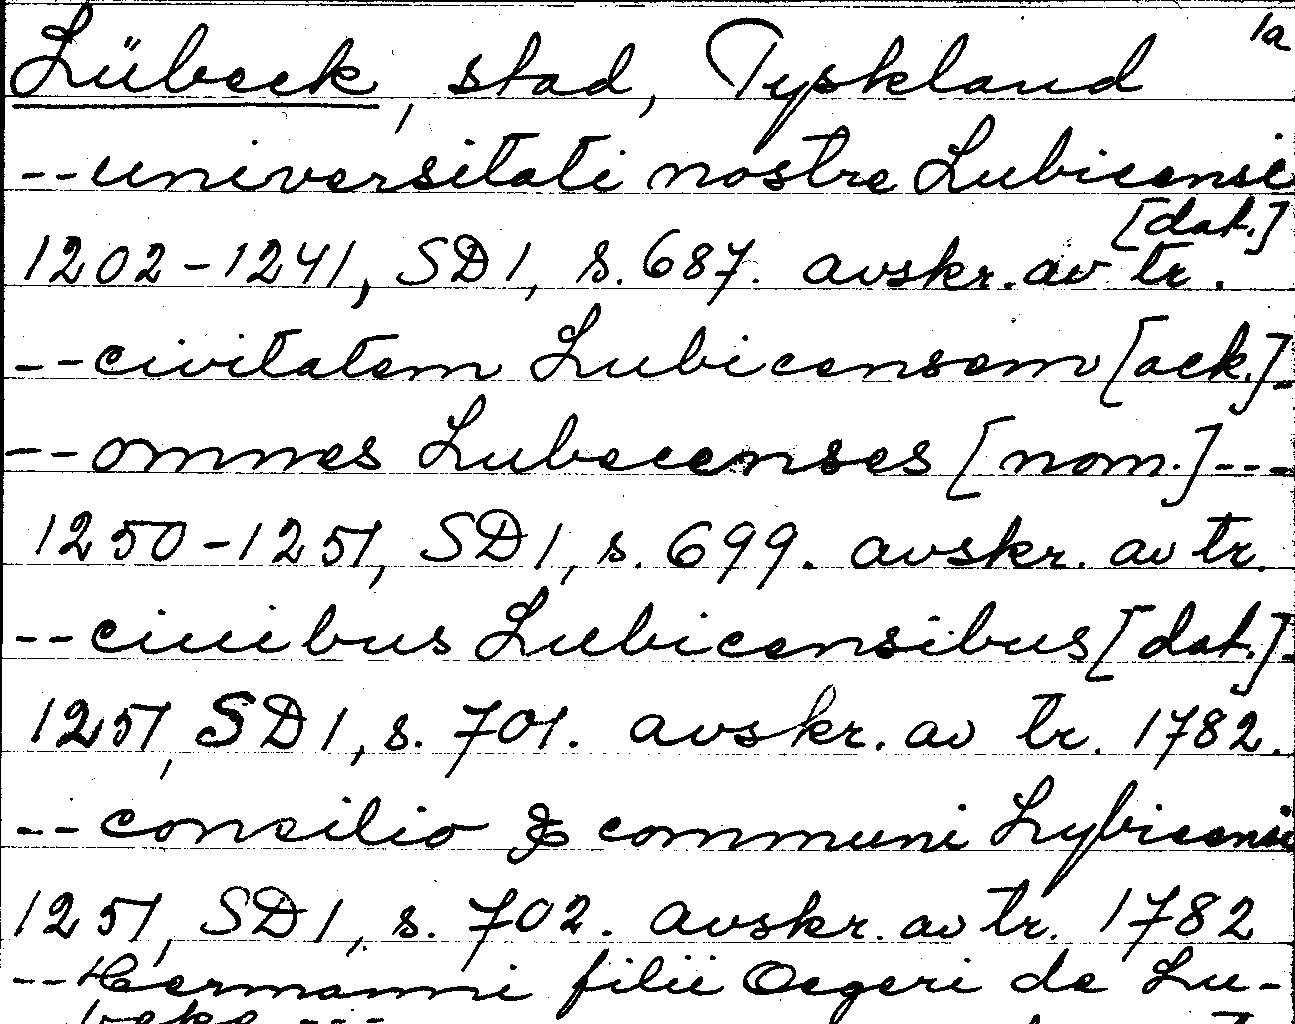 1a
Lübeck, stad, Tyskland
--universitati nostre Lubicensi
[dat.]
1202-1241, SD1, s. 687. avskr. av tr.
--civitatem Lubicensem [ack.]-
--omnes Lubecenses [nom.]---
1250-1251, SD1, s. 699. avskr. av tr.
--ciuibus Lubicensibus [dat.]-
1251, SD1, s. 701. avskr. av tr. 1782.
--consilio & communi Lybicensi
1251, SD1, s. 702. avskr. av tr. 1782
--Hermanni filii Oegeri de Lu-
beke ---